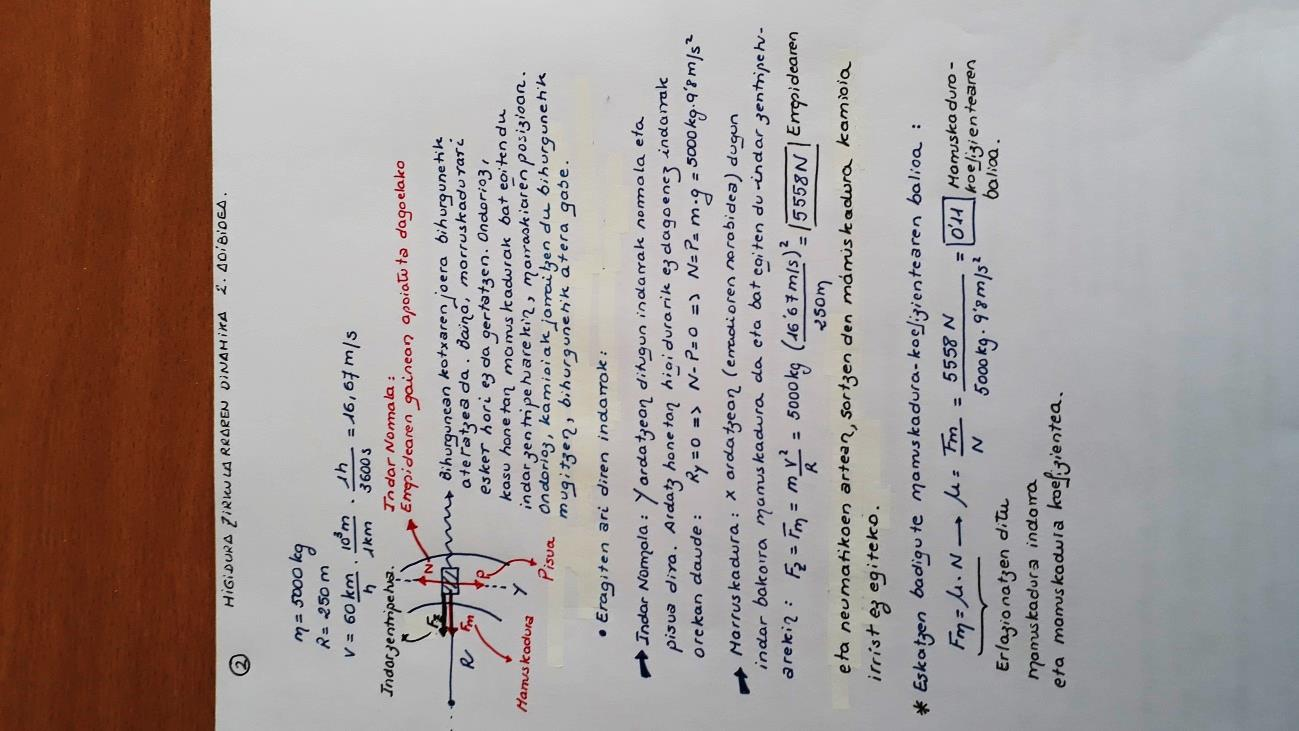 ② HIGIDURA ZIRKULARRAREN DINAMIKA 2. ADIBIDEA.
m = 5000 kg
R = 250 m
v = 60 km/h · 10³m/1km · 1h/3600s = 16,67 m/s
Indar zentripetua.
Indar Normala:
Errepidearen gainean apoiatuta dagoelako
N
Fz
Fm
P
R
Y
Pisua
Marruskadura
Bihurgunean kotxearen joera bihurgunetik
ateratzea da. Baina, marruskadurari
esker hori ez da gertatzen. Ondorioz,
kasu honetan marruskadurak bat egiten du
indar zentripetuarekin, marrazkiaren posizioan.
Ondorioz, kamioiak jarraitzen du bihurgunetik
mugitzen, bihurgunetik atera gabe.
• Eragiten ari diren indarrak:
➡ Indar Normala: Y ardatzean ditugun indarrak normala eta
pisua dira. Ardatz honetan higidurarik ez dagoenez indarrak
orekan daude: Ry=0 => N-P=0 => N=P= m·g = 5000kg·9'8m/s²
➡ Marruskadura: x ardatzean (erradioren norabidea) dugun
indar bakarra marruskadura da eta bat egiten du indar zentripetu-
arekin: Fz = Fm = m v²/R = 5000kg (16'67m/s)²/250m = 5558N Errepidearen
eta neumatikoen artean, sortzen den marruskadura kamioia
irrist ez egiteko.
* Eskatzen badigute marruskadura-koefizientearen balioa:
Fm = μ·N → μ = Fm/N = 5558 N/5000kg·9'8m/s² = 0'11 Marruskadura-
koefizientearen
balioa.
Erlazionatzen ditu
marruskadura indarra
eta marruskadura koefizientea.